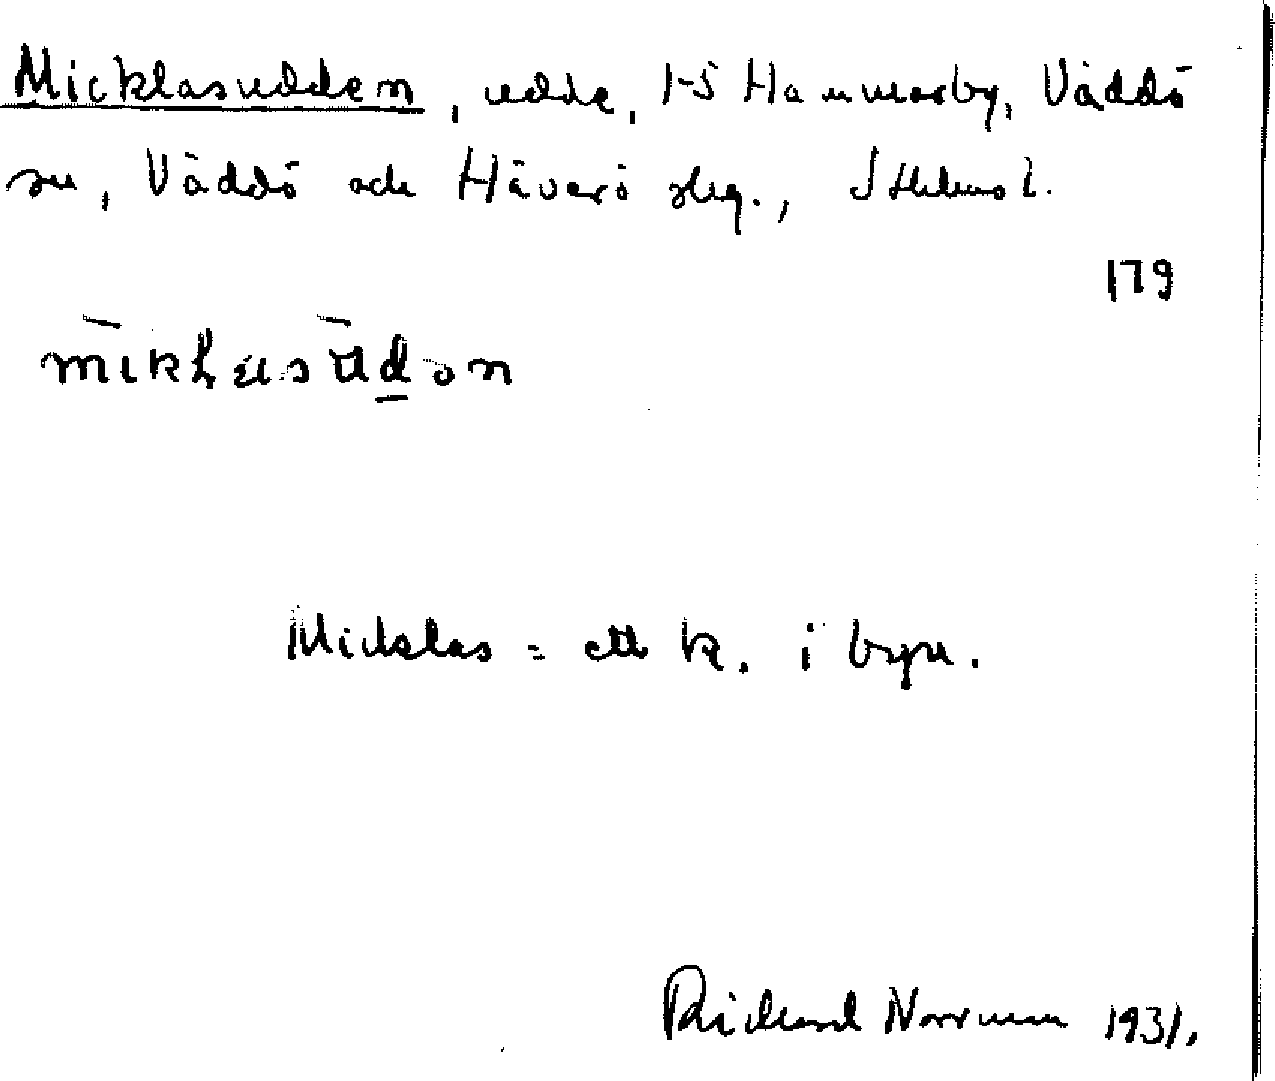 Micklasudden, udde, 1-5 Hammarby, Väddö
sn, Väddö och Häverö slg., Sthlms l.
179
Micklas = ett k. i byn.
Richard Norrman 1931.